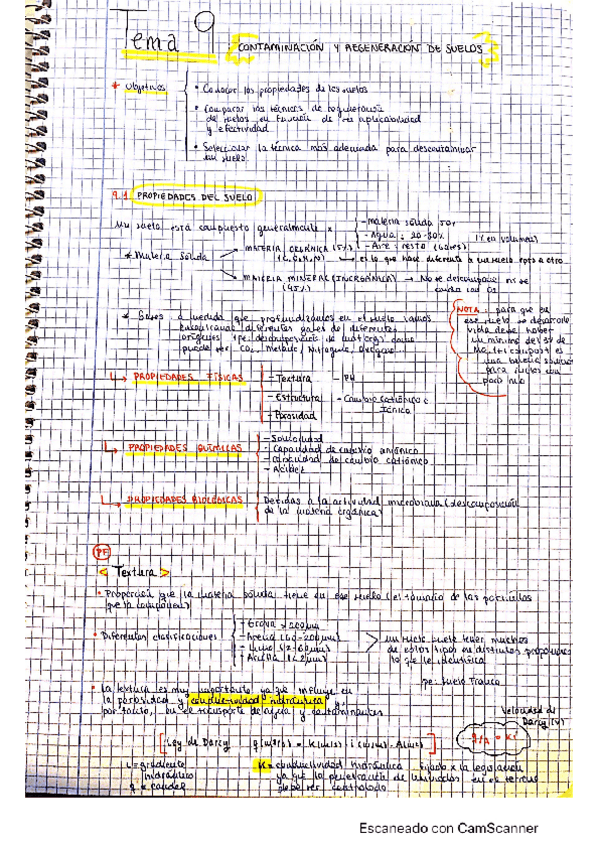 Tema 9
CONTAMINACIÓN Y REGENERACIÓN DE SUELOS
* Objetivos
• Conocer las propiedades de los suelos
• Comparar las técnicas de regeneración
de suelos en función de su aplicabilidad
y efectividad
• Seleccionar la técnica más adecuada para descontaminar
un suelo
9.1 PROPIEDADES DEL SUELO
Un suelo está compuesto generalmente x
- Materia sólida 50%
- Agua: 20-30%
- Aire: resto (Gases)
(% en volumen)
* Materia Sólida
MATERIA ORGÁNICA (5%)
(C, O, H, N)
→ es lo que hace diferente a un suelo rspto a otro
MATERIA MINERAL (INORGÁNICA)
(45%)
→ No se descompone ni se
* Gases a medida que profundizamos en el suelo vamos
encontrando diferentes gases de diferentes
orígenes (pe: descomposición de mat org) como
puede ser CO₂, metano, Nitrógeno, oxígeno...
NOTA: para que en
ese suelo se desarrolle
vida debe haber
un mínimo del 5% de
Mo.
para suelos con
poca mo
↳ PROPIEDADES FÍSICAS
- Textura
- Estructura
- Porosidad
- PH
- Cambio catiónico e
iónico
↳ PROPIEDADES QUÍMICAS
- Solubilidad
- Capacidad de cambio aniónico
- Capacidad de cambio catiónico
- Acidez
↳ PROPIEDADES BIOLÓGICAS
Debidas a la actividad microbiana (descomposición
de la materia orgánica)
PF
< Textura >
• Proporción que la materia sólida tiene en ese suelo (el tamaño de las partículas
que la componen)
• Diferentes clasificaciones
- Grava > 200µm
- Arena (60-200µm)
- Limo (2-60µm)
- Arcilla (<2µm)
un suelo suele tener muchos
de estos tipos en distintas proporciones
lo que le identifica
pe: Suelo Franco
• La textura es muy importante ya que influye en
la porosidad y conductividad hidráulica y,
por tanto, en el transporte de agua y contaminantes
Velocidad de
Darcy (v)
[Ley de Darcy q(m³/s) = K(m/s) · i(m/m) · A(m²)]
q/A = Ki
i = gradiente
hidráulico
q = caudal
K = conductividad hidráulica fijado x la legislación
ya que la penetración de lixiviados en el terreno
debe ser controlado
Escaneado con CamScanner